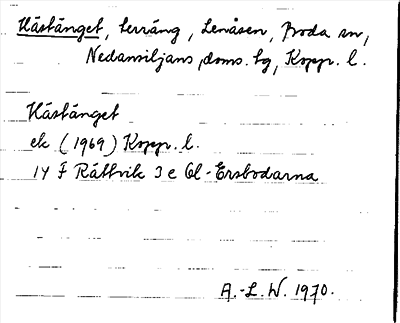 Hästänget, terräng, Lenåsen, Boda sn,
Nedansiljans doms. tg, Kopp. l.
Hästänget
ek (1969) Kopp. l.
14 F Rättvik 3 e Ol-Ersbodarna
A.-L. W. 1970.